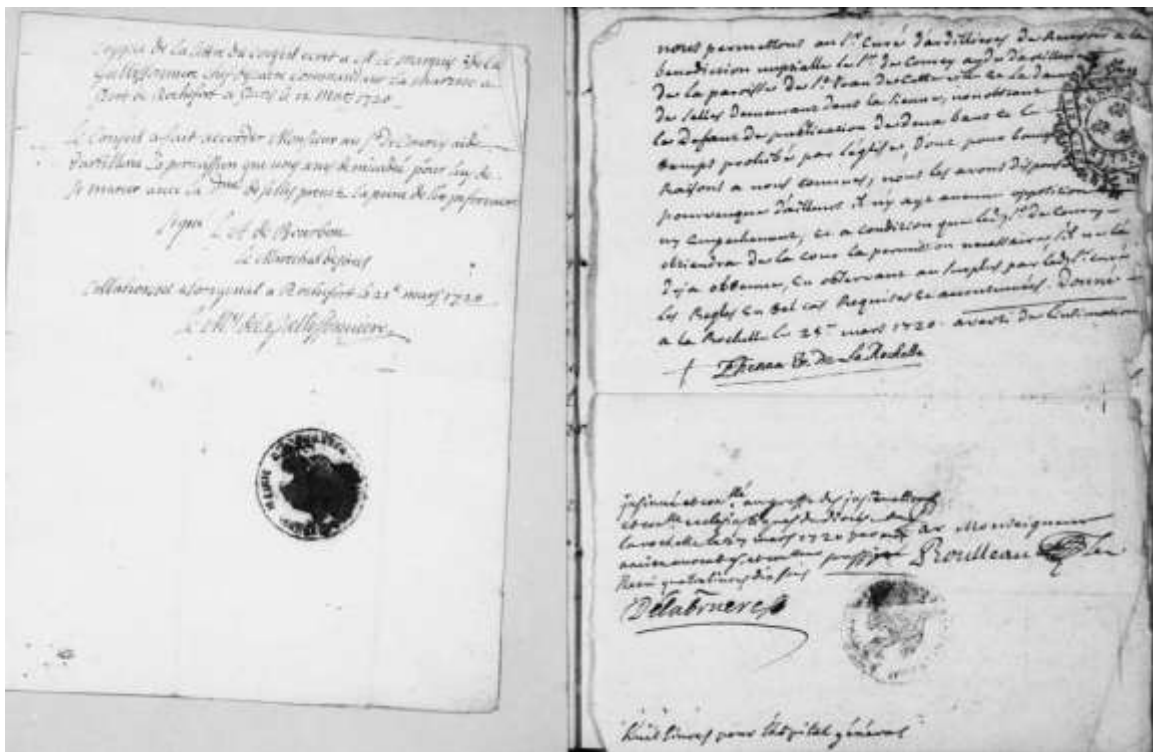 Coppie de la lettre du conseil ecrit a M. le marquis de la
Gallissonniere commandant la marine au
Port de Rochefort a Paris le 12 Mars 1720
Le Conseil a fait accorder Monsieur au Sr. de Courcy aide
d'artillerie la permission que vous avez demandée pour luy de
se marier avec la Dlle de selles prenez la peine de l'en informer
signé L. A. de Bourbon
Le Marechal destrées
Collationné a l'original a Rochefort le 21e mars 1720
Le Mis de la Gallissonniere
nous permettons au Sr. Curé d'ardillieres de Recevoir a la
benediction nuptialle le Sr. de Courcy ayde d'artillerie
de la paroisse de St. Jean de cette ville et la demlle
de selles demeurant dans la sienne, nonobstant
le defaut de publication de deux bans et le
temps prohibé par l'eglise, dont pour bonnes
Raisons a nous connues, nous les avons dispensés
pourveuque d'ailleurs il n'y aye aucune opposition
ny empechement, et a condition que ledt Sr. de Courcy
obtiendra de la cour la permission necessaire s'il ne l'a
deja obtenue, en observant au surplus par ledt Sr. curé
les Regles en tel cas Requises et accoutumées. Donné
a la Rochelle le 25me mars 1720 averti de l'insinuation
+ Etienne Ev. de La Rochelle
insinué et conllé au greffe des insinuations
ecclesiastiques du diocese de
la rochelle le 27 mars 1720 par
Par Monseigneur
Roulleau
Receu quatre livres dix sols
Delabruere
huit livres pour l'hôpital général